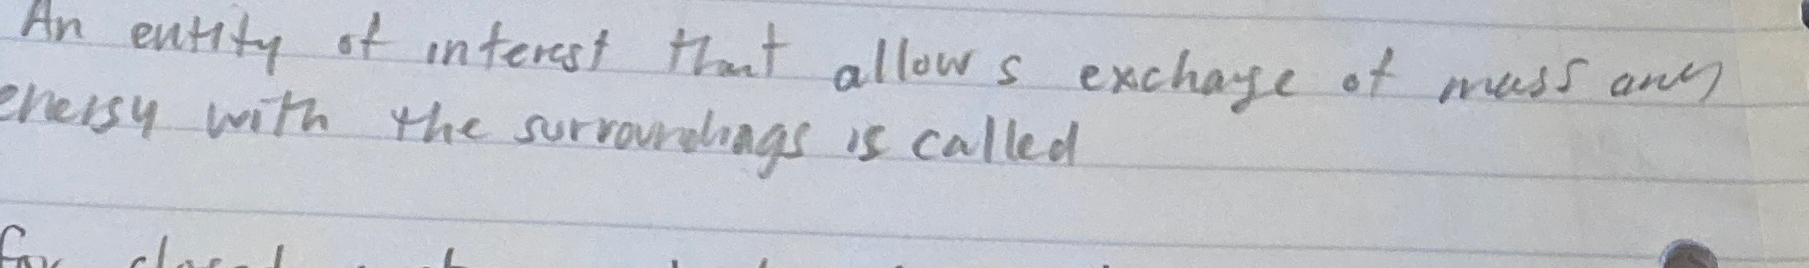 An entity of interest that allows exchange of mass and
energy with the surroundings is called
for closed